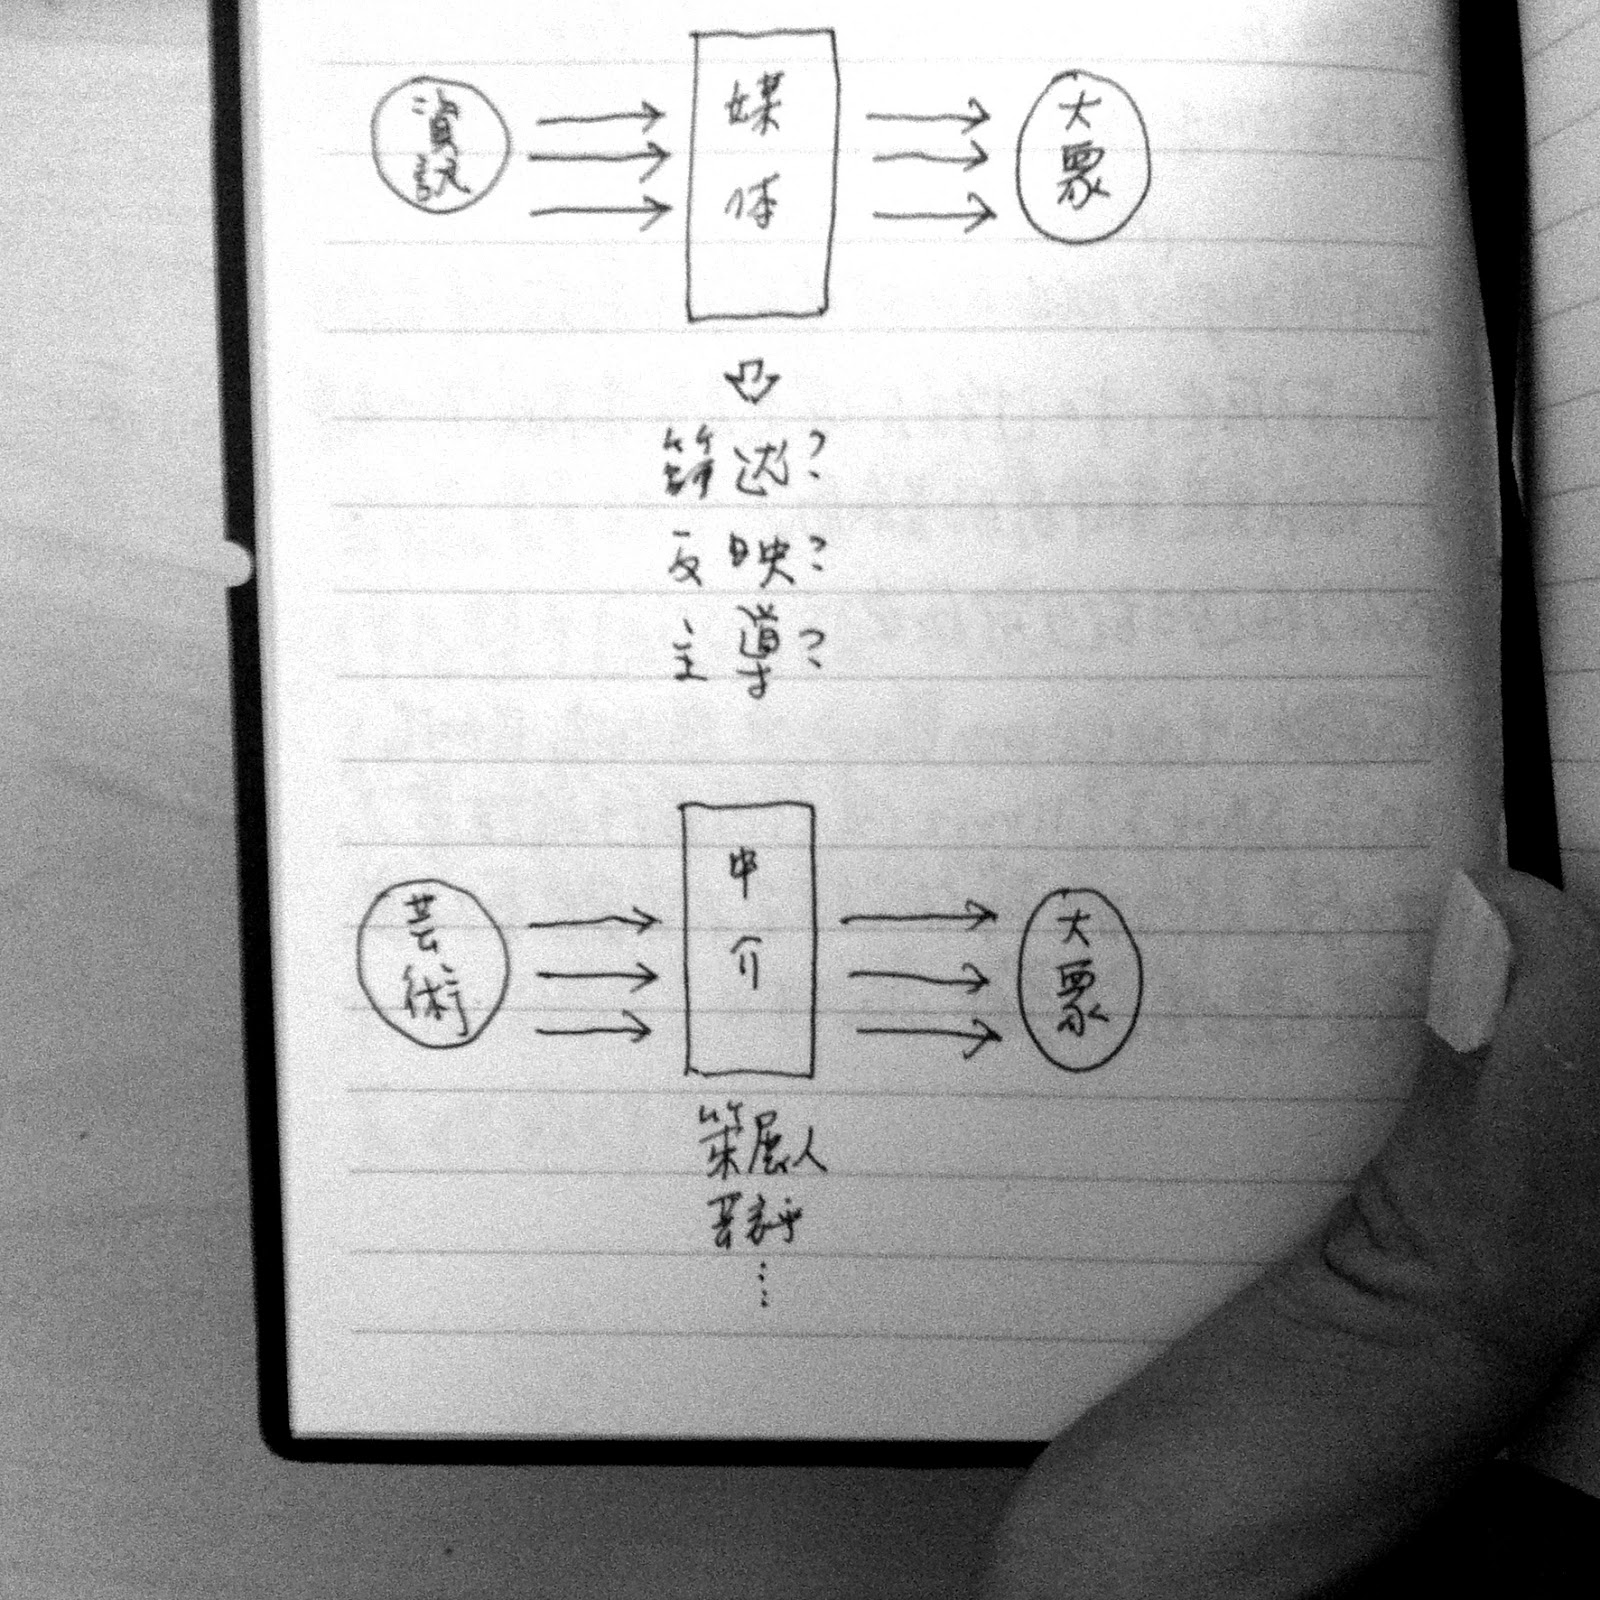 資訊
媒体
大眾
篩选?
反映?
主導?
芸術
中介
大眾
策展人
芸評
⋯